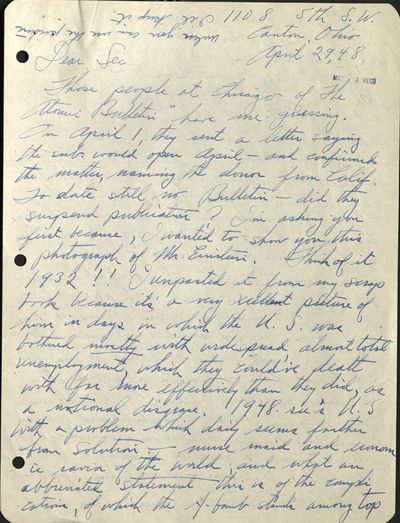 1108 5th S. W.
Canton, Ohio
April 29, 48.
Unless you can use the picture
I'll keep it.
Dear Sec.
Those people at Chicago of "The
Atomic Bulletin" have me guessing.
On April 1, they sent a letter saying
the sub. would open April – and confirmed
the matter, naming the donor from Calif.
To date still no Bulletin – did they
suspend publication? I'm asking you
first because, I wanted to show you this
photograph of Mr. Einstein. Think of it
1932!!! I unpasted it from my scrap
book because its a very excellent picture of
him in days in which the U. S. was
bothered mostly with widespread almost total
unemployment, which they could've dealt
with far more effectively than they did, as
a national disgrace. 1948 see's U. S
with a problem which daily seems farther
from solution – nurse maid and econom
ic savior of the world, and what an
abbreviated statement this is of the compli
cations, of which the A-bomb stands among top